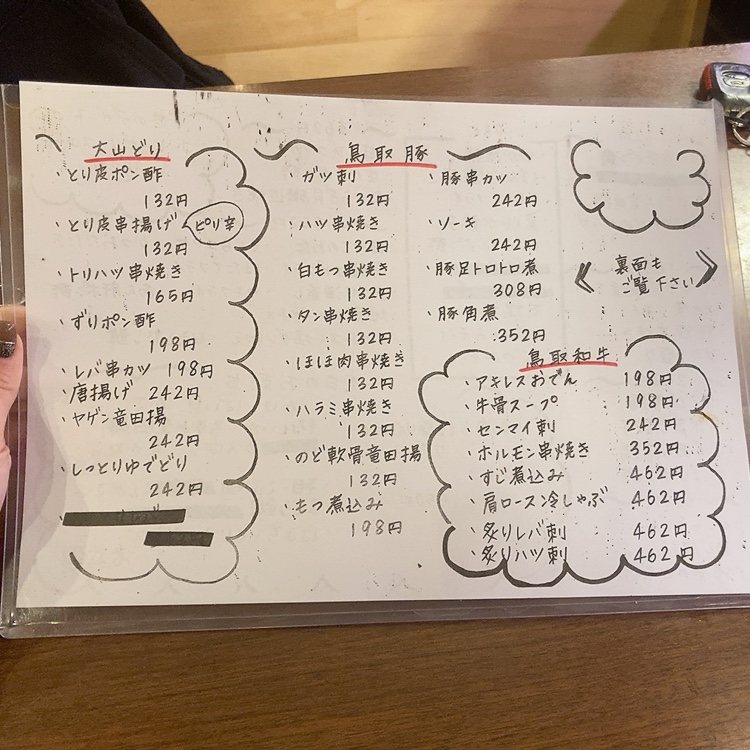 大山どり
・とり皮ポン酢
132円
・とり皮串揚げ
ピリ辛
132円
・トリハツ串焼き
165円
・ずりポン酢
198円
・レバ串カツ 198円
・唐揚げ 242円
・ヤゲン竜田揚
242円
・しっとりゆでどり
242円
鳥取豚
・ガツ刺
132円
・ハツ串焼き
132円
・白もつ串焼き
132円
・タン串焼き
132円
・ほほ肉串焼き
132円
・ハラミ串焼き
132円
・のど軟骨竜田揚
132円
・もつ煮込み
198円
・豚串カツ
242円
・ソーキ
242円
・豚足トロトロ煮
308円
・豚角煮
352円
裏面も
ご覧下さい
鳥取和牛
・アキレスおでん 198円
・牛骨スープ 198円
・センマイ刺 242円
・ホルモン串焼き 352円
・すじ煮込み 462円
・肩ロース冷しゃぶ 462円
・炙りレバ刺 462円
・炙りハツ刺 462円